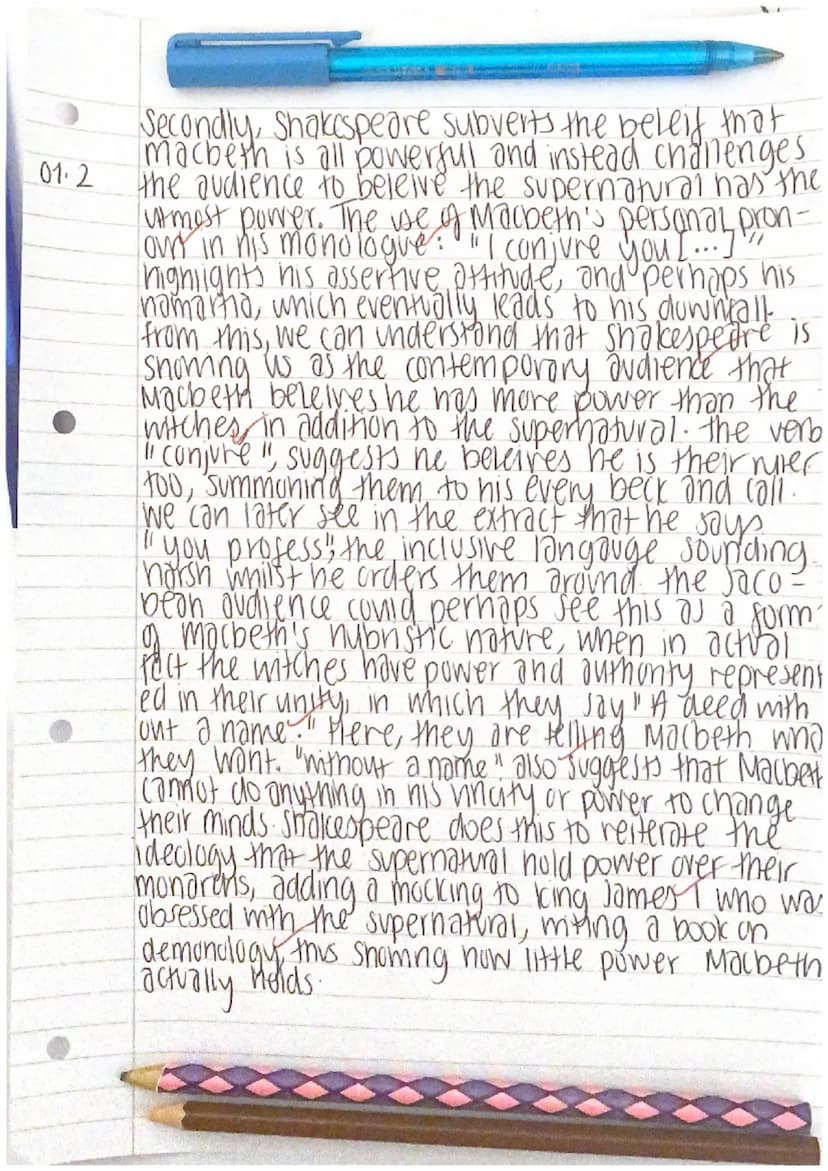 Secondly, Shakespeare subverts the beleif that
01.2
macbeth is all powerful and instead challenges
the audience to beleive the supernatural has the
utmost power. The use of Macbeth's personal pron-
oun in his monologue: "I conjure you [...]"
highlights his assertive attitude, and perhaps his
hamartia, which eventually leads to his downfall.
from this, we can understand that Shakespeare is
showing us as the contemporary audience that
Macbeth beleives he has more power than the
witches, in addition to the supernatural. The verb
"conjure", suggests he beleives he is their ruler
too, summoning them to his every beck and call.
We can later see in the extract that he says
"you profess", the inclusive langauge sounding
harsh whilst he orders them around. The Jaco-
bean audience could perhaps see this as a form
of Macbeth's hubristic nature, when in actual
fact the witches have power and authority represent
ed in their unity, in which they say "A deed with
out a name." Here, they are telling Macbeth who
they want. "without a name" also suggests that Macbeth
cannot do anything in his vincity or power to change
their minds. Shakespeare does this to reiterate the
ideology that the supernatural hold power over their
monarchs, adding a mocking to King James I who was
obsessed with the supernatural, writing a book on
demonology, thus showing how little power Macbeth
actually holds.